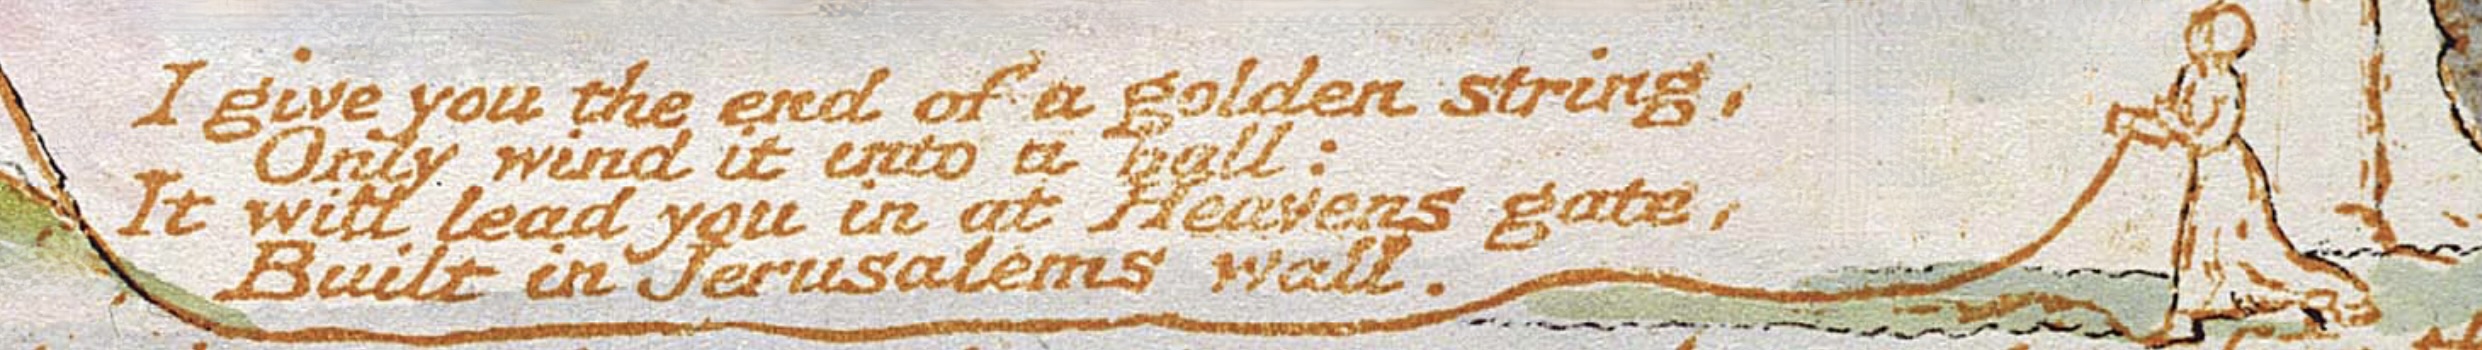 I give you the end of a golden string,
Only wind it into a ball:
It will lead you in at Heavens gate,
Built in Jerusalems wall.